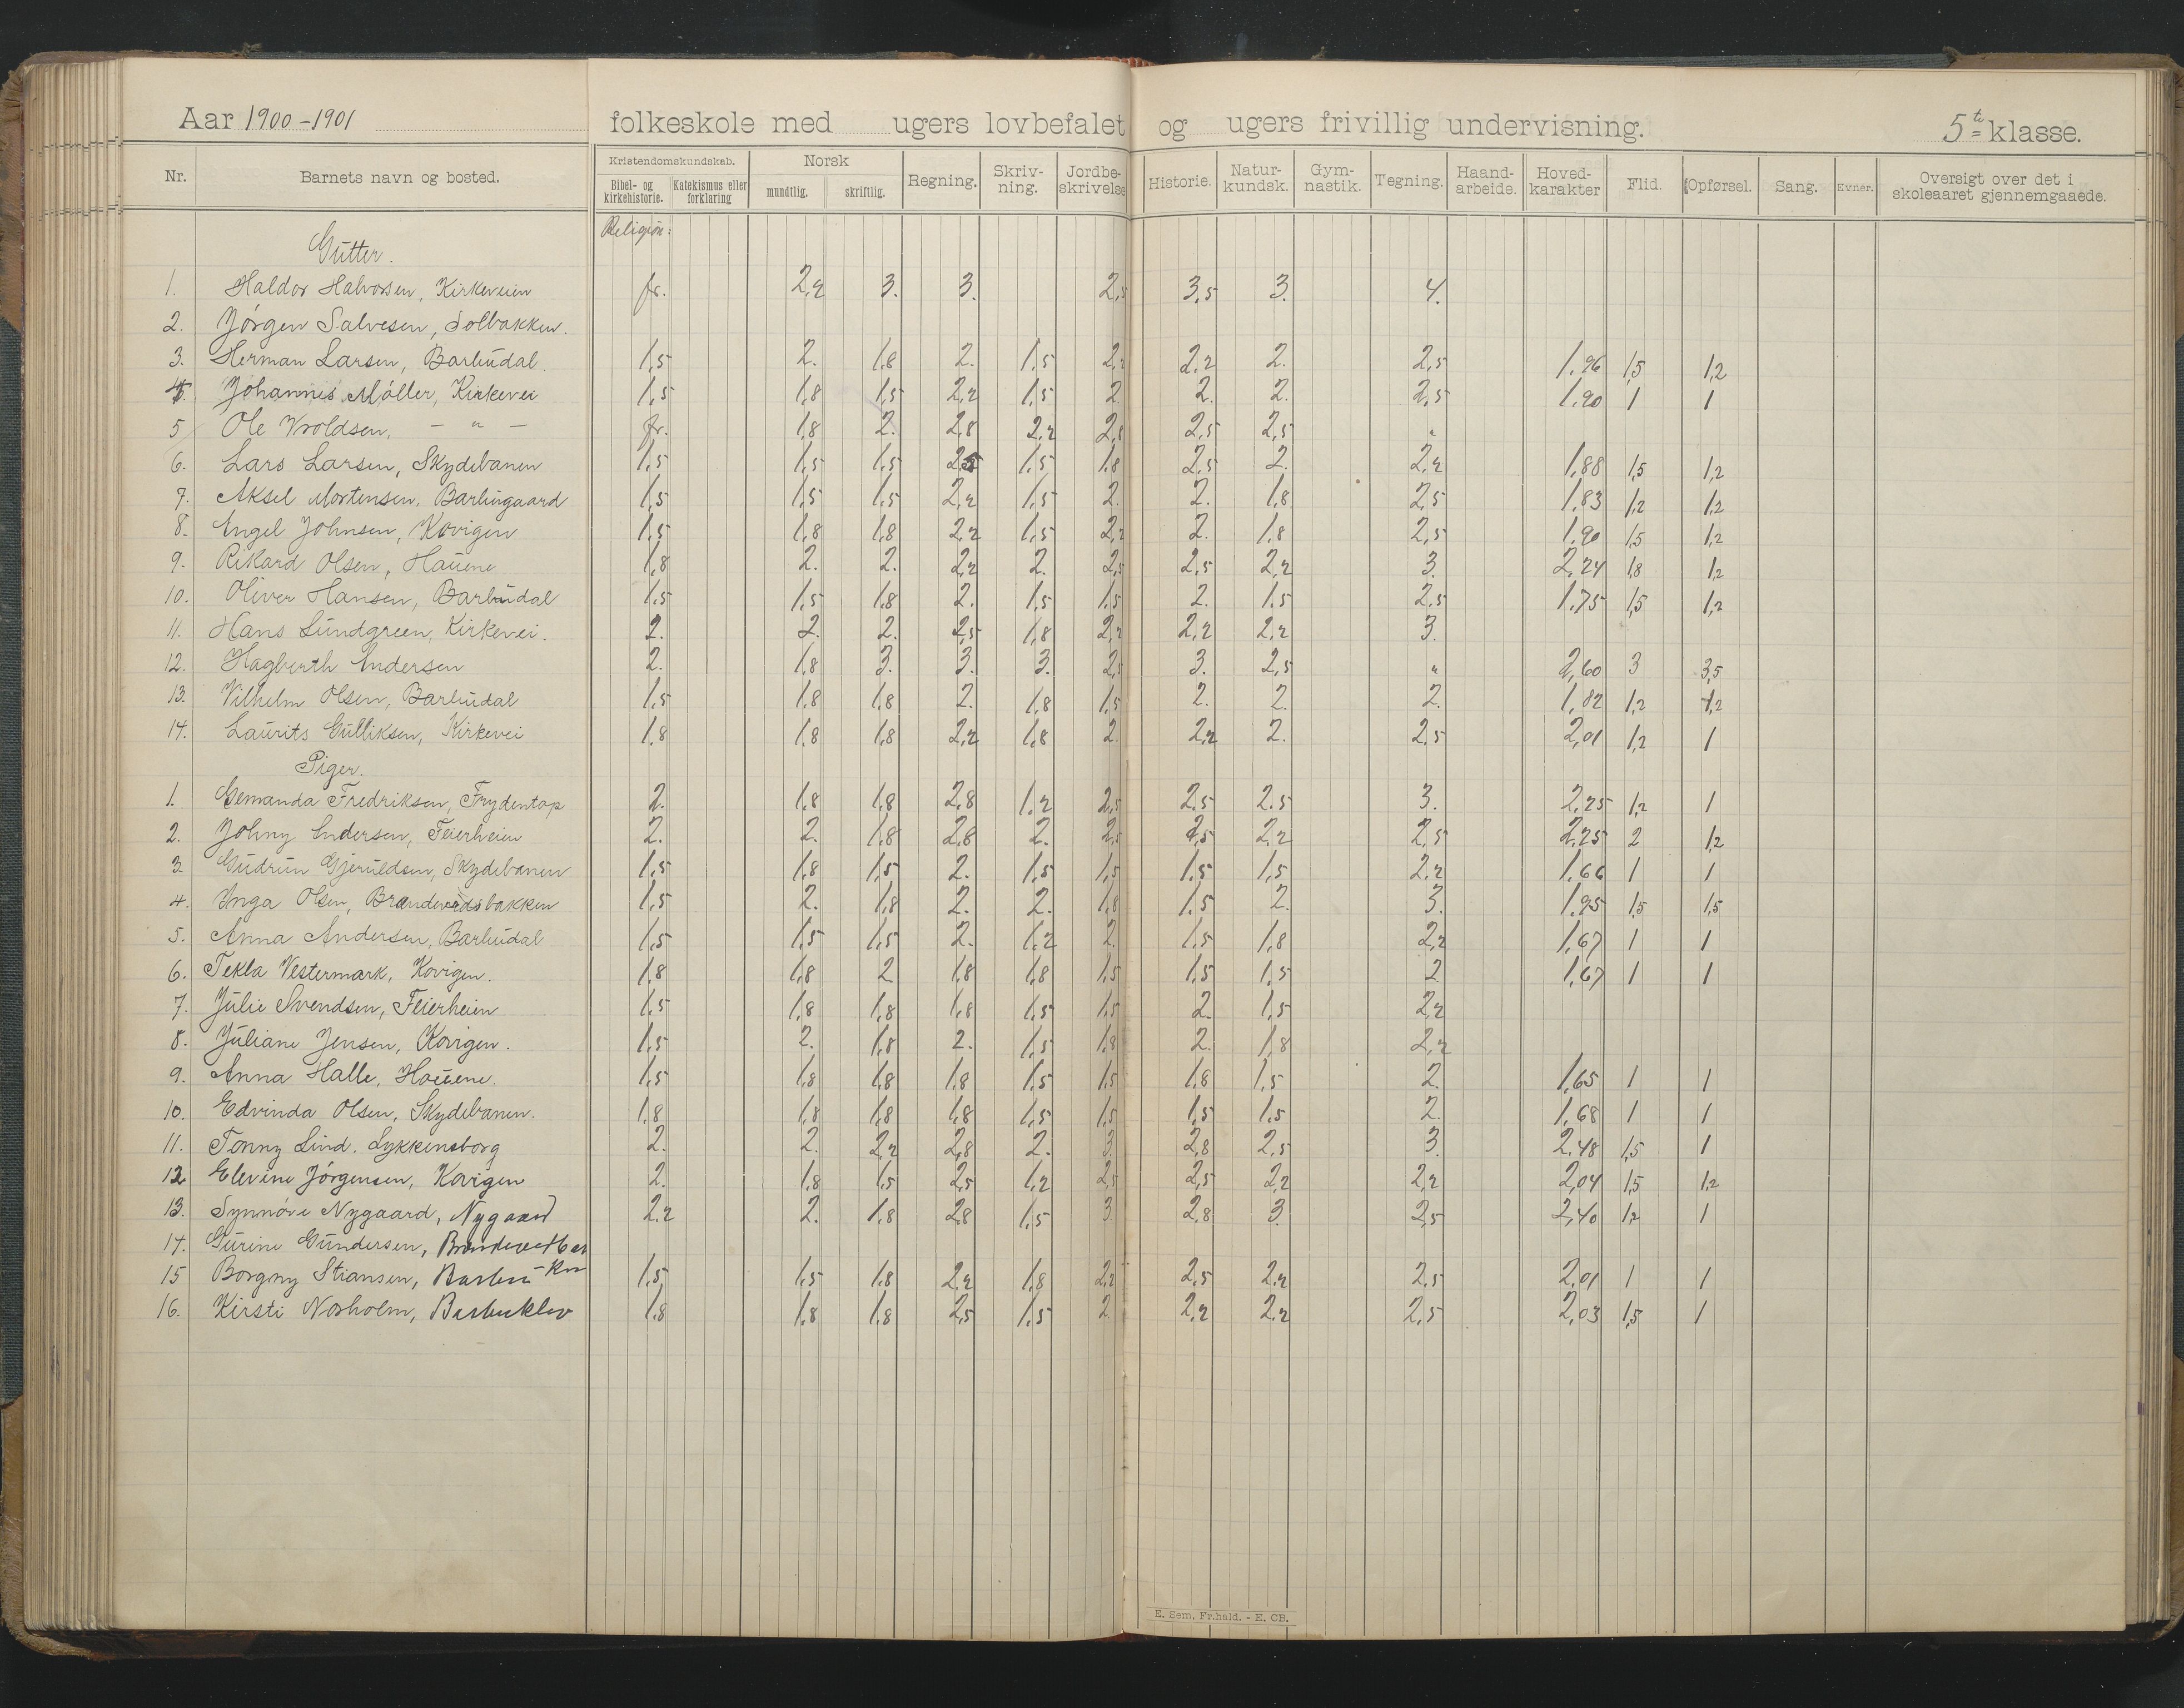 Aar 1900-1901 folkeskole med ugers lovbefalet og ugers frivillig undervisning. 5te klasse.
Nr. Barnets navn og bosted. Kristendomskundskab. Bibel- og kirkehistorie. Katekismus eller forklaring Norsk mundtlig. skriftlig. Regning. Skriv-ning. Jordbe-skrivelse Historie. Natur-kundsk. Gym-nastik. Tegning. Haand-arbeide. Hoved-karakter Flid. Opførsel. Sang. Evner. Oversigt over det i skoleaaret gjennemgaaede.
Religion:
Gutter.
1. Haldor Halvorsen, Kirkeveien fr. 2,2 3. 3. 2,5 3,5 3. 4.
2. Jörgen Salvesen, Solbakken.
3. Herman Larsen, Barbudal. 1,5 2. 1,8 2. 1,5 2,2 2,2 2. 2,5 1,96 1,5 1,2
4. Johannes Möller, Kirkevei 1,5 1,8 1,5 2,2 1,5 2 2. 2. 2,5 1,90 1 1
5 Ole Vroldsen, — " — fr. 1,8 2. 2,8 2,2 2,5 2,5 2,5 "
6. Lars Larsen, Skydebanen 1,5 1,5 1,5 2,5 1,5 1,8 2,5 2. 2,2 1,88 1,5 1,2
7. Aksel Mortensen, Barbugaard 1,5 1,5 1,5 2,2 1,5 2. 2. 1,8 2,5 1,83 1,2 1,2
8. Engel Johnsen, Kovigen 1,5 1,8 1,8 2,2 1,5 2,2 2. 1,8 2,5 1,90 1,5 1,2
9. Rikard Olsen, Hauene 1,8 2. 2. 2,2 2. 2,5 2,5 2,2 3. 2,24 1,8 1,2
10. Oliver Hansen, Barbudal 1,5 1,5 1,8 2. 1,5 1,5 2. 1,5 2,5 1,75 1,5 1,2
11. Hans Lundgreen, Kirkevei. 2. 2. 2. 2,5 1,8 2,2 2,2 2,2 3.
12. Hagberth Andersen 2. 1,8 3. 3. 3. 2,5 3. 2,5 " 2,60 3 3,5
13. Vilhelm Olsen, Barbudal 1,5 1,8 1,8 2. 1,8 1,5 2. 2. 2. 1,82 1,2 1,2
14. Laurits Gulliksen, Kirkevei 1,8 1,8 1,8 2,2 1,8 2. 2,2 2. 2,5 2,01 1,2 1
Piger.
1. Gemanda Fredriksen, Frydentop 2. 1,8 1,8 2,8 1,2 2,5 2,5 2,5 3. 2,25 1,2 1
2. Johny Andersen, Feierheien 2. 2. 1,8 2,8 2. 2,5 2,5 2,2 2,5 2,25 2 1,2
3. Gudrun Gjeruldsen, Skydebanen 1,5 1,8 1,5 2. 1,5 1,5 1,5 1,5 2,2 1,66 1 1
4. Inga Olsen, Brandevedsbakken 1,5 2. 1,8 2. 2. 1,8 1,5 2. 3. 1,95 1,5 1,5
5. Anna Andersen, Barbudal 1,5 1,5 1,5 2. 1,2 2. 1,5 1,8 2,2 1,67 1 1
6. Tekla Vestermark, Kovigen. 1,8 1,8 2 1,8 1,8 1,5 1,5 1,5 2 1,67 1 1
7. Julie Svendsen, Feierheien 1,5 1,8 1,8 1,8 1,5 1,5 2. 1,5 2,2
8. Juliane Jensen, Kovigen. 1,5 2. 1,8 2. 1,5 1,8 2. 1,8 2,2
9. Anna Halle, Hauene. 1,5 1,8 1,8 1,8 1,5 1,5 1,8 1,5 2. 1,65 1 1
10. Edvinda Olsen, Skydebanen. 1,8 1,8 1,8 1,8 1,5 1,5 1,5 1,5 2. 1,68 1 1
11. Tonny Lind, Lykkensborg 2. 2. 2,2 2,8 2. 3. 2,8 2,5 3. 2,48 1,5 1
12 Elevine Jörgensen, Kovigen 2. 1,8 1,5 2,5 1,2 2,5 2,5 2,2 2,2 2,04 1,5 1,2
13. Synnöve Nygaard, Nygaard 2,2 2. 1,8 2,8 1,5 3 2,8 3. 2,5 2,40 1,2 1
14. Gurine Gundersen, Brandevedbak
15 Borgny Stiansen, Barbu -ken 1,5 1,5 1,8 2,2 1,8 2,2 2,5 2,2 2,5 2,01 1 1
16. Kirsti Norholm, Barbuklev 1,8 1,8 1,8 2,5 1,5 2 2,2 2,2 2,5 2,03 1,5 1
E. Sem, Fr.hald. - E. CB.